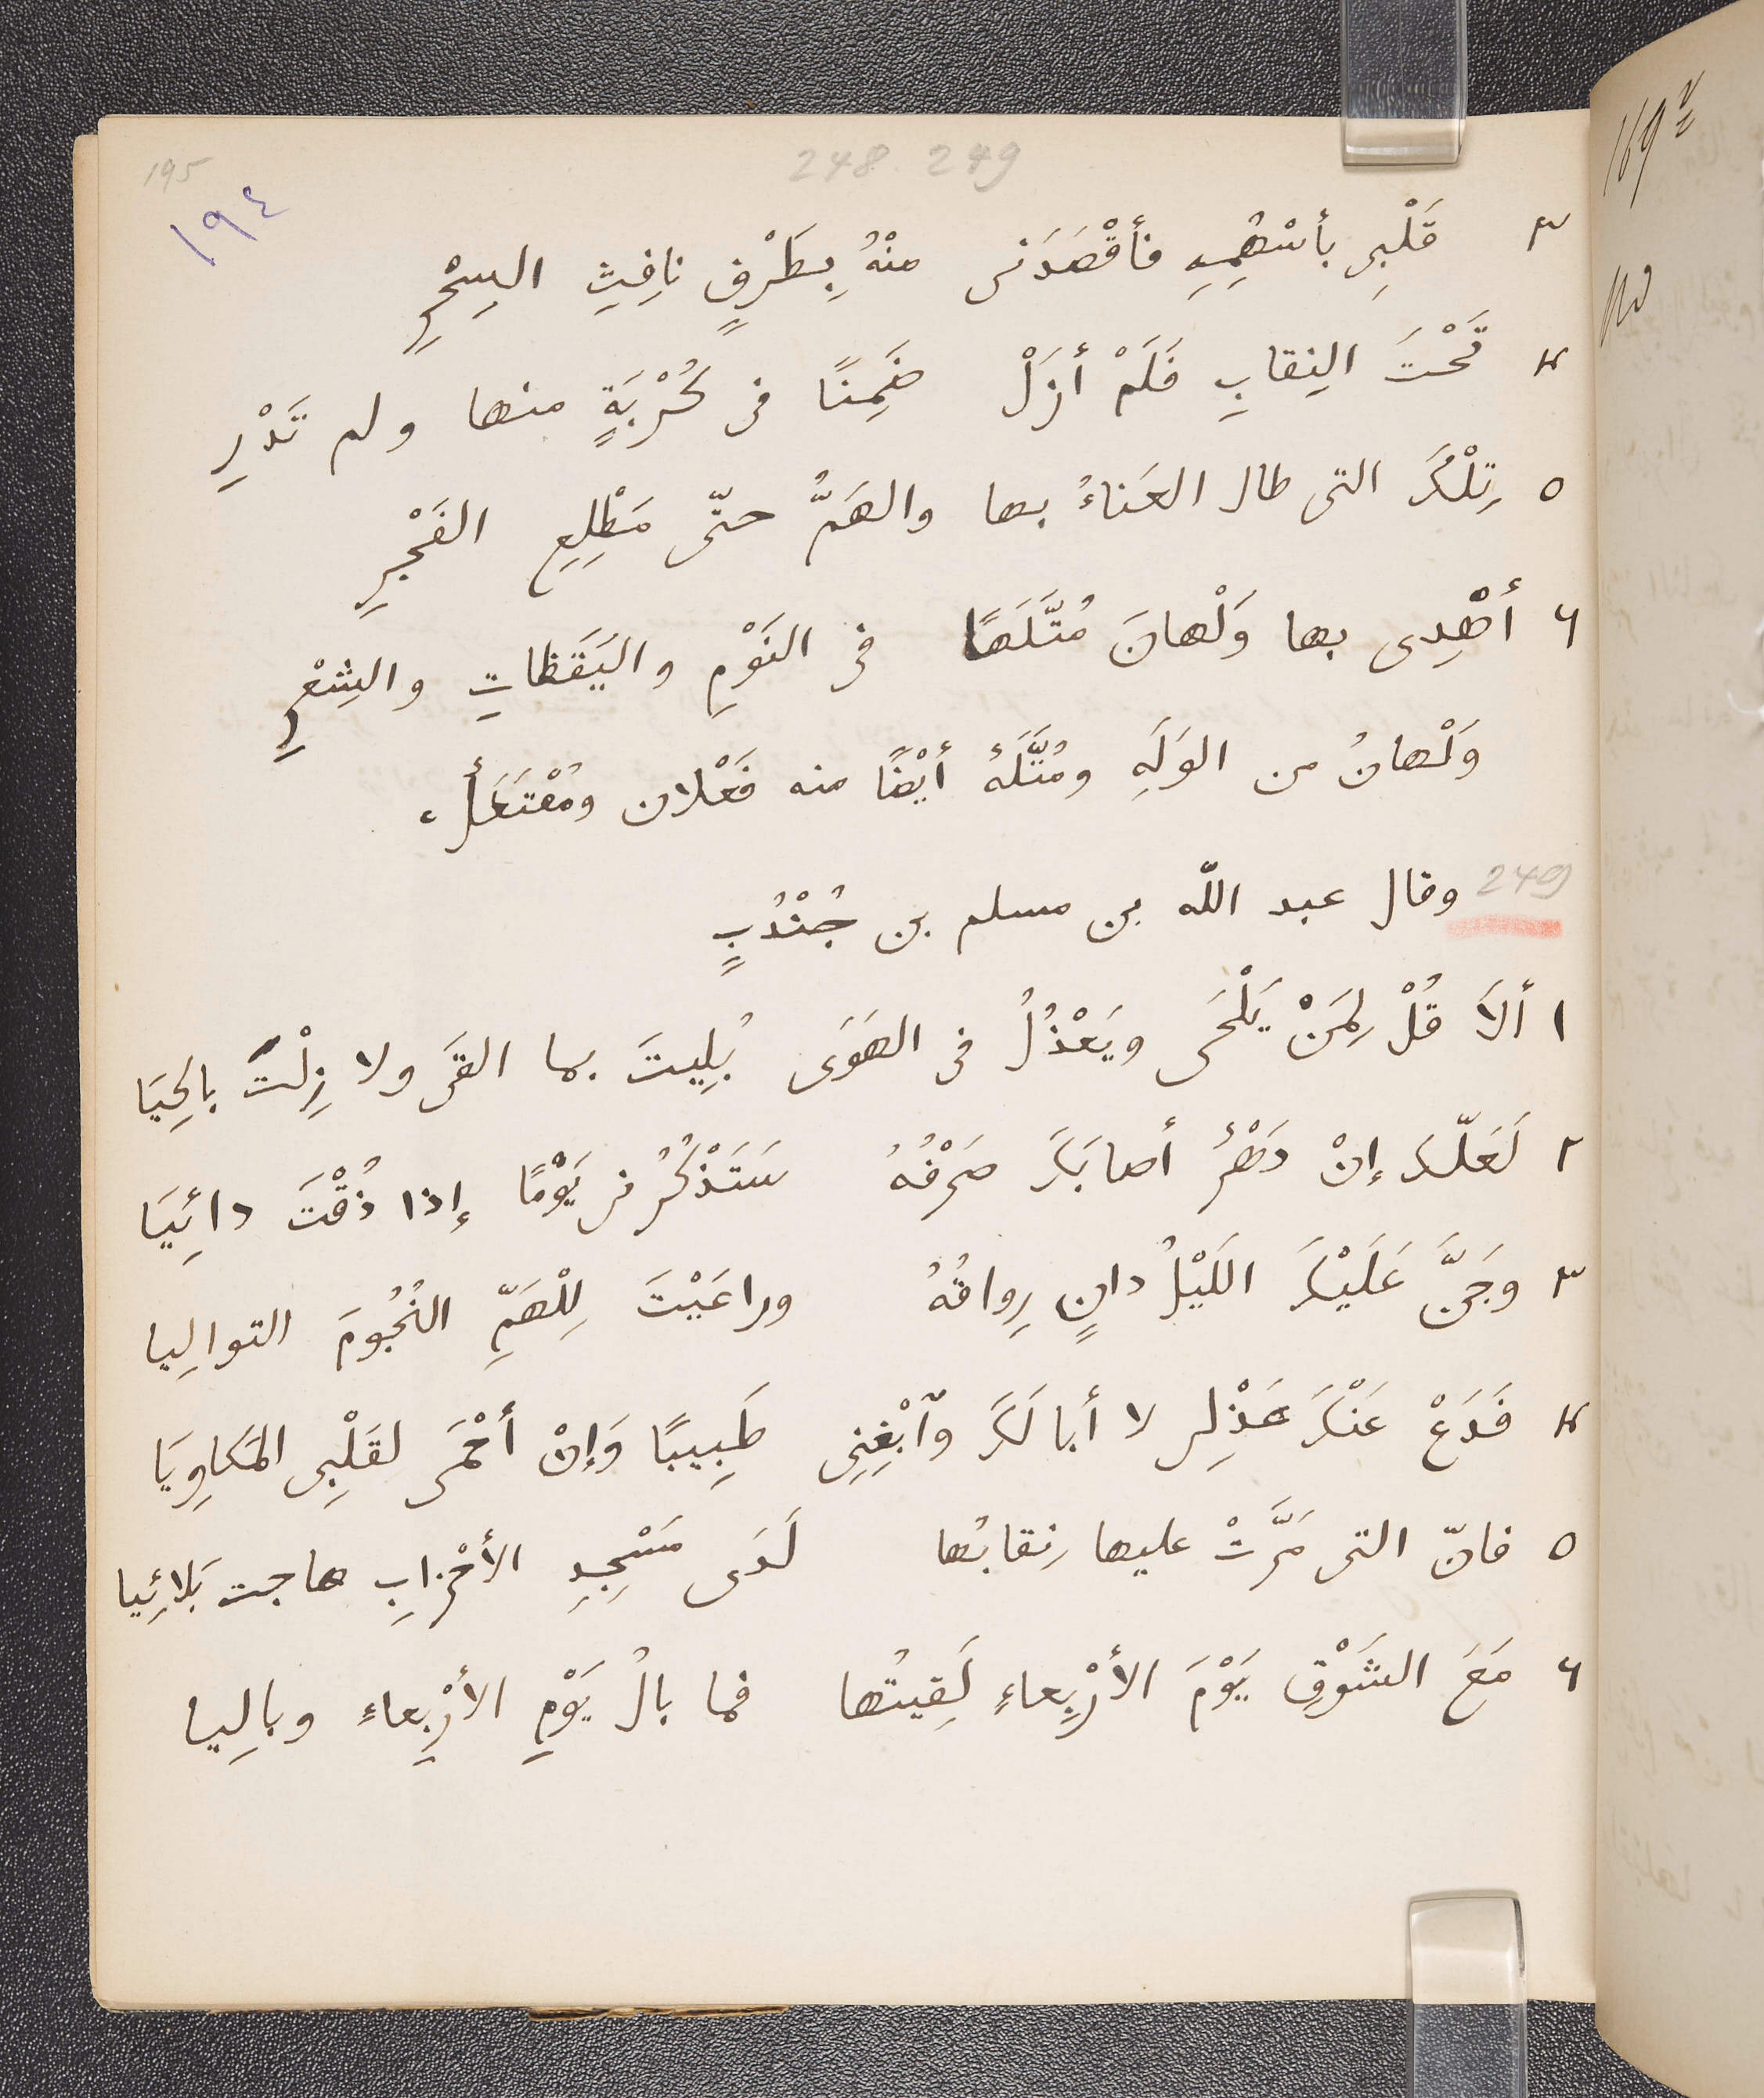 195
248. 249
١٩٤
٣ قَلْبِى بأسْهُمِهِ فأقْصَدَنى منْهُ بِطَرْفٍ نافِثِ السِحْرِ
٤ تَحْتَ النِقابِ فَلَمْ أزَلْ ضَمِنًا فى كُرْبَةٍ منها ولم تَدْرِ
٥ تِلْكَ التى طال العَناءُ بها والهَمُّ حتّى مَطْلِعِ الفَجْرِ
٦ أهْذِى بها وَلْهانَ مُتَّلَهًا فى النَوْمِ واليَقَظاتِ والشِعْرِ
وَلْهانُ من الوَلَهِ ومُتَّلَهٌ أيْضًا منه فَعْلان ومُفْتَعَلٌ،
249 وقال عبد اللّه بن مسلم بن جُنْدُبٍ
١ ألَا قُلْ لِمَنْ يَلْحَى ويَعْذُلُ فى الهَوَى بُلِيتَ بما القَى ولا زِلْتَ بالِحيَا
٢ لَعَلّكَ إنْ دَهْرٌ أصابَكَ صَرْفُهُ سَتَذْكُرُنى يَوْمًا إذا ذُقْتَ دائِيَا
٣ وجَنَّ عَلَيْكَ اللَيْلُ دانٍ رِواقُهُ وراعَيْتَ لِلْهَمِّ النُجُومَ التوالِيا
٤ فَدَعْ عَنْكَ عَذْلِى لا أبا لَكَ وٱبْغِنِى طَبِيبًا وَإنْ أحْمَى لقَلْبِى المَكاوِيَا
٥ فانّ التى مَرَّتْ عليها نِقابُها لَدَى مَسْجِدِ الأحْزابِ هاجت بَلائِيا
٦ مَعَ الشَوْقِ يَوْمَ الأرْبِعاءِ لَقِيتُها فما بالُ يَوْمِ الأرْبِعاءِ وبالِيا
169